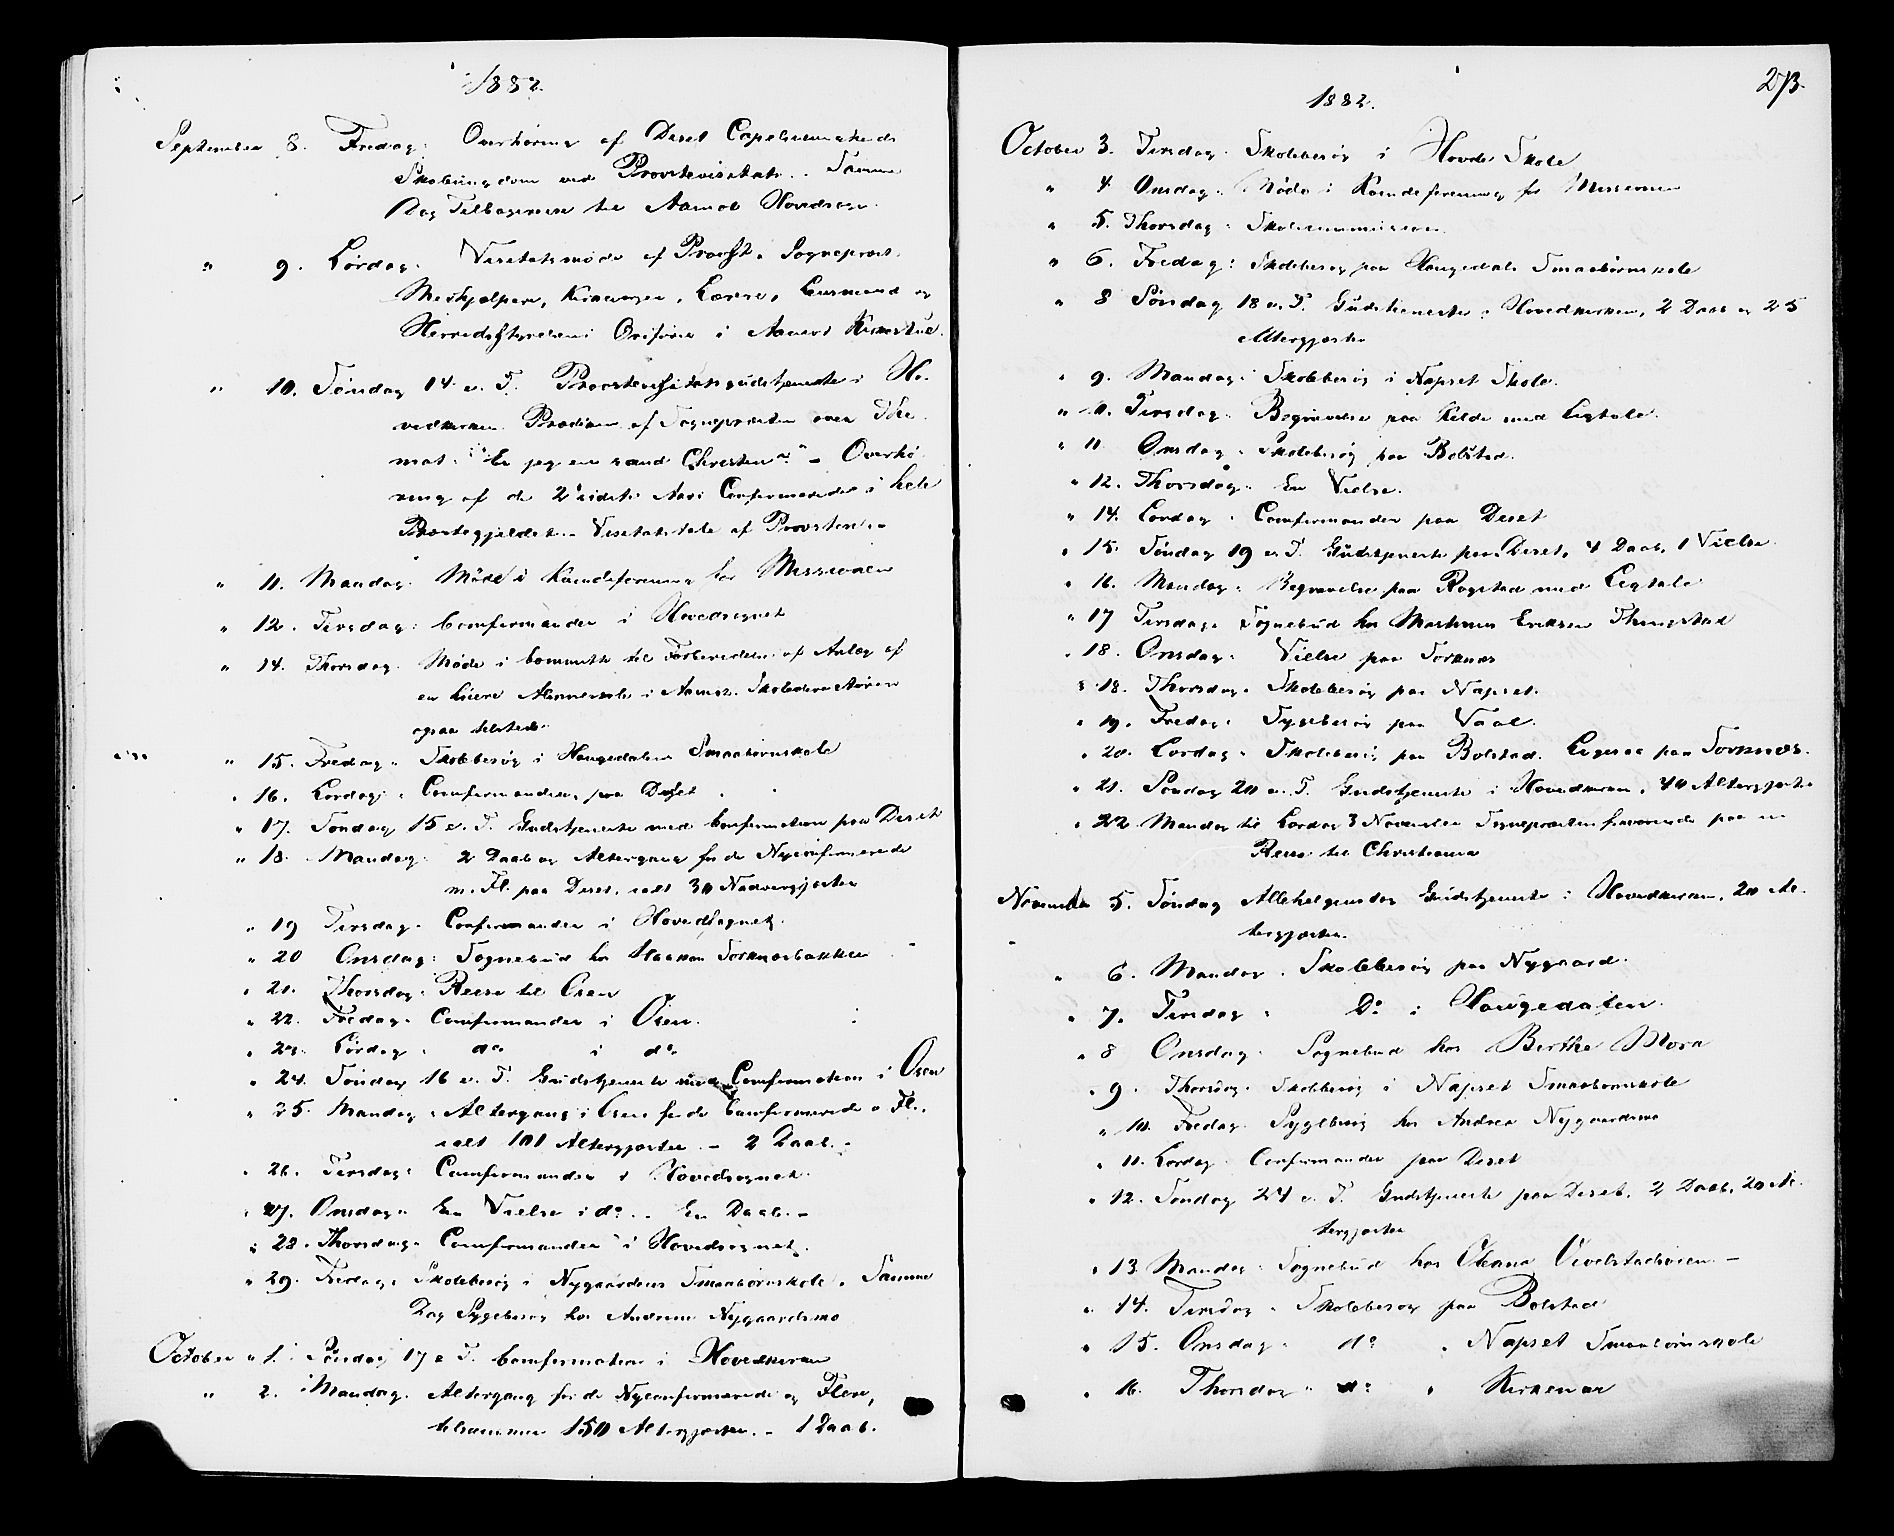 1882.
September 8. Fredag: Overhøring af Deset Capelsamenheds
Skoleungdom ved Provstevisitats. Samme
Dag Tilbagereise til Aamot Hovedsogn.
" 9. Lørdag. Visitatsmøde af Provst, Sognepræst,
Medhjælpere, Kirkesanger, Lærere, Lensmand og
Herredsstyrelsens Ordfører i Aamots Kirkestue.
" 10. Søndag 14 e. T. Provstevisitatsgudstjeneste i Ho-
vedkirken. Prædiken af Sognepræsten over The-
mat: "Er jeg en sand Christen?" – Overhø-
ring af de 2 sidste Aars Confirmerede i hele
Præstegjeldet. – Visitatstale af Provsten. –
" 11. Mandag. Møde i Kvindeforening for Missionen
" 12. Tirsdag: Comfirmander i Hovedsognet
" 14. Thorsdag. Møde i Committe til Forberedelse af Anlæg af
en høiere Almueskole i Aamot. Skoledirectøren
ogsaa tilstede.
" 15. Fredag. Skolebesøg i Haugedalens Smaabørnskole
" 16. Lørdag. Comfirmander paa Deset
" 17. Søndag 15 e. T. Gudstjeneste med Confirmation paa Deset
" 18. Mandag. 2 Daab og Altergang for de Nyconfirmerede
m. Fl. paa Deset, ialt 30 Nadvergjester
" 19 Tirsdag. Confirmander i Hovedsognet.
" 20 Onsdag: Sognebud hos Haakon Sorknesbakken
" 21. Thorsdag. Reise til Osen
" 22. Fredag. Comfirmander i Osen.
" 23. Lørdag. do i do
" 24. Søndag 16 e. T. Gudstjeneste med Comfirmation i Osen
" 25. Mandag. Altergang i Osen for de Comfirmerede o. Fl.,
ialt 101 Altergjester. – 2 Daab. –
" 26. Tirsdag. Comfirmander i Hovedsognet.
" 27. Onsdag. En Vielse i do. – En Daab. –
" 28. Thorsdag. Comfirmander i Hovedsognet.
" 29. Fredag. Skolebesøg i Nygaardens Smaabørnskole. Samme
Dag Sygebesøg hos Andrea Nygaardsmo
October " 1. Søndag 17 e. T. Comfirmation i Hovedkirken
" 2. Mandag. Altergang for de Nyconfirmerede og Flere,
tilsammen 150 Altergjester. – 1 Daab.
273.
1882.
October 3. Tirsdag. Skolebesøg i Hovde Skole
" 4 Onsdag. Møde i Kvindeforening for Missionen
" 5. Thorsdag. Skolecommission
" 6. Fredag: Skolebesøg paa Haugedals Smaabørnskole
" 8 Søndag 18 e. T. Gudstjeneste i Hovedkirken, 2 Daab og 25
Altergjester
" 9. Mandag. Skolebesøg i Napset Skole.
" 10. Tirsdag. Begravelse paa Kilde med Ligtale.
" 11 Onsdag. Skolebesøg paa Bolstad.
" 12. Thorsdag. En Vielse.
" 14. Lørdag. Comfirmander paa Deset
" 15. Søndag 19 e. T. Gudstjeneste paa Deset, 4 Daab, 1 Vielse.
" 16. Mandag. Begravelse paa Rogstad med Ligtale
" 17 Tirsdag. Sognebud hos Marthinus Eriksen Thingstad
" 18. Onsdag. Vielse paa Sorknes
" 18. Thorsdag. Skolebesøg paa Napset.
" 19. Fredag. Sygebesøg paa Vaal.
" 20. Lørdag. Skolebesøg paa Bolstad. Ligesaa paa Sorknes.
" 21. Søndag 20 e. T. Gudstjeneste i Hovedkirken, 40 Altergjester
" 22 Mandag til Lørdag 3 November Sognepræsten fraværende paa en
Reise til Christiania
November 5. Søndag Allehelgensdag Gudstjeneste i Hovedkirken, 20 Al-
tergjester.
" 6. Mandag. Skolebesøg paa Nygaard.
" 7. Tirsdag. Do i Haugedalen.
" 8 Onsdag. Sognebud hos Berthe Mora
" 9. Thorsdag. Skolebesøg i Napset Smaabørnskole
" 10. Fredag. Sygebesøg hos Andrea Nygaardsmo
" 11. Lørdag. Confirmander paa Deset
" 12. Søndag 24 e. T. Gudstjeneste paa Deset. 2 Daab, 20 Al-
tergjester
" 13 Mandag. Sognebud hos –
" 14. Tirsdag. Skolebesøg paa Bolstad
" 15. Onsdag. do " Napset Smaabørnskole
" 16. Thorsdag. do " Kirkenær